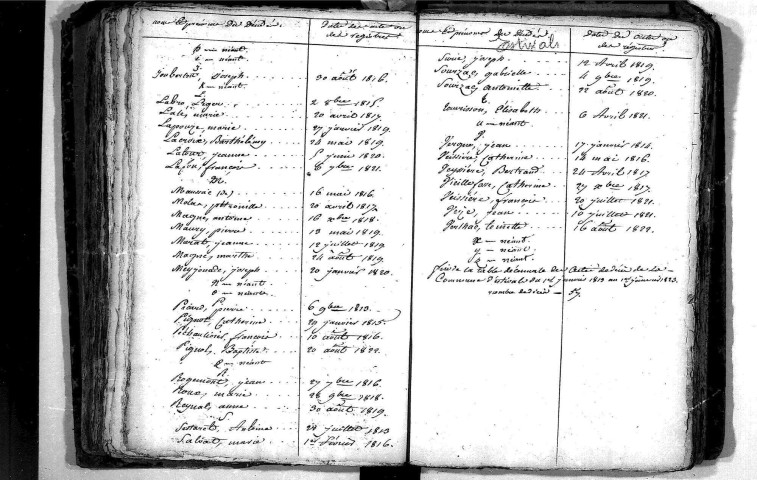 nom & prénoms Du Décédé. Dates des actes ou des registres
h — néant.
i — néant
J
Joubertou, Joseph 30 août 1816.
K — néant.
L
Labro, 2 8bre 1815.
Lale, marie 20 avril 1817.
Lapouze, marie 27 janvier 1819.
Lacroix, Barthélemy 24 mai 1819.
Latour, jeanne 5 juin 1820.
Lafon, françois 8 9bre 1821.
M.
16 mai 1816
Molux, pétronille 20 avril 1817.
Magne, antoine 16 xbre 1818.
Maury, pierre 13 mai 1819.
Murat, jeanne 12 juillet 1819
Magne, marthe 24 août 1819.
Meyjonade, joseph 20 janvier 1820.
n — néant
o — néant.
P
pierre 6 9bre 1813.
Pignot, Catherine 29 janvier 1815.
françois 10 août 1816.
Pignol, Baptiste 20 août 1822.
Q — néant
R.
Rogemont, jean 27 7bre 1816.
Roux, marie 28 9bre 1818.
Reynal, anne 30 août 1819.
S
24 juillet 1813
Salvat, marie 1er février 1816.
nom & prénoms Du Décédé Dates des actes ou des régistres
Estivals
joseph 12 Avril 1819.
Sourzac, gabrielle 4 9bre 1819.
Sourzac, antoinette 22 août 1820.
t.
Élisabeth 6 Avril 1821.
u — néant
V.
Vergne, jean 17 janvier 1814.
Veissière, Catherine 14 mai 1816.
Veyssière, Bertrand 24 Avril 1817
Vieillefon, Catherine 27 xbre 1817.
Veissière, françoise 20 juillet 1821.
jean 10 juillet 1821.
16 août 1822.
x — néant.
y — néant.
z — néant.
fin de la table décennale des Actes de décès de La
Commune d'Estivals du 1er janvier 1813 au 1er janvier 1823.
nombre de décès — 57.